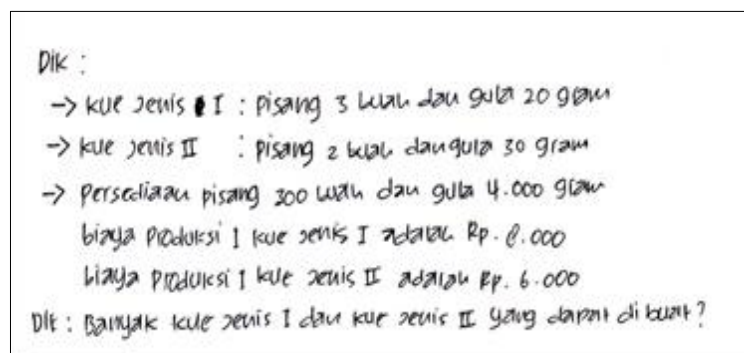 Dik :
-> kue jenis I : pisang 3 buah dan gula 20 gram
-> kue jenis II : pisang 2 buah dan gula 30 gram
-> Persediaan pisang 300 buah dan gula 4.000 gram
biaya Produksi 1 kue jenis I adalah Rp. 8.000
biaya Produksi 1 kue jenis II adalah Rp. 6.000
Dit : Banyak kue jenis I dan kue jenis II yang dapat di buat ?